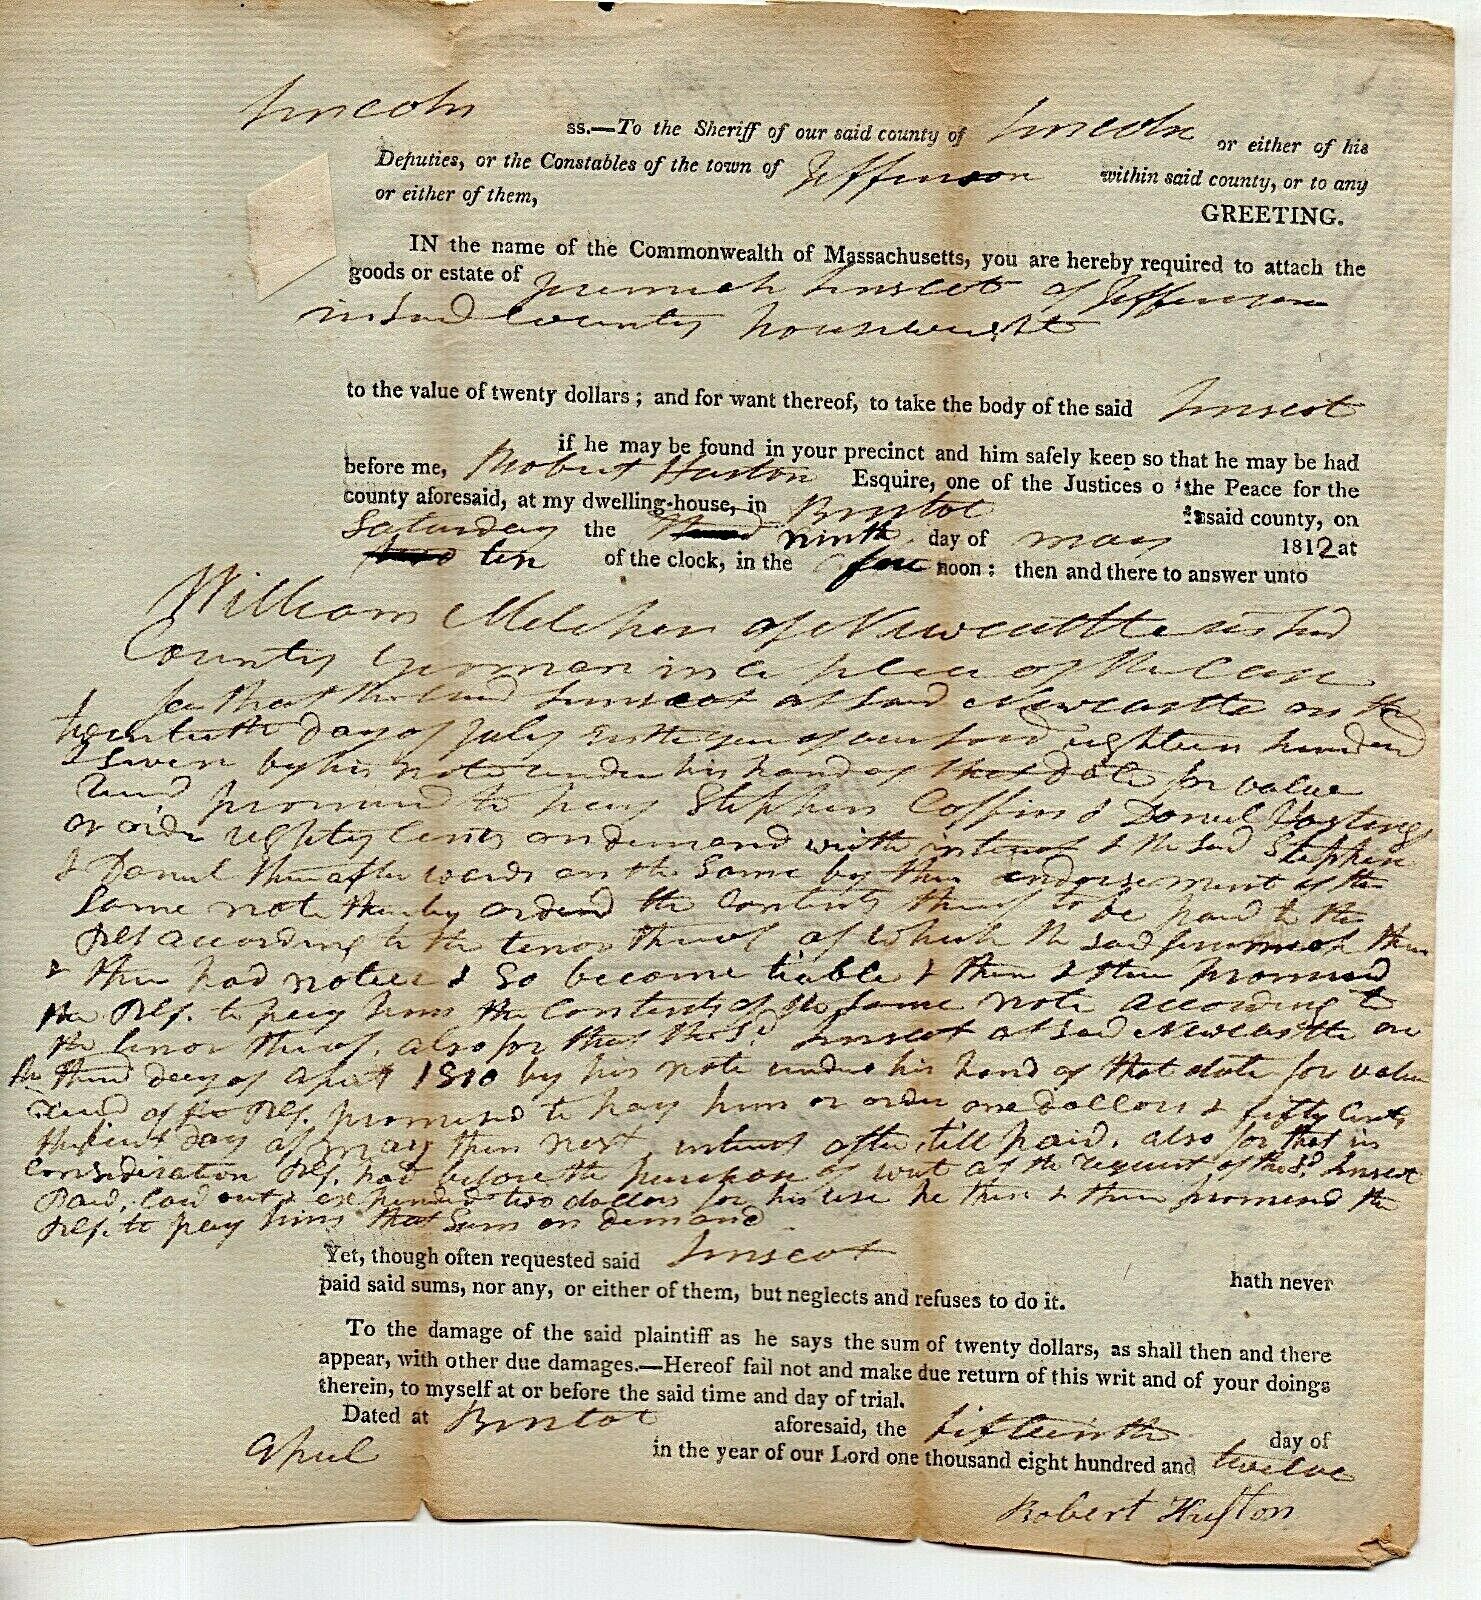 Lincoln ss.—To the Sheriff of our said county of Lincoln or either of his
Deputies, or the Constables of the town of Jefferson within said county, or to any
or either of them,
GREETING.
IN the name of the Commonwealth of Massachusetts, you are hereby required to attach the
goods or estate of Jeremiah Linscot of Jefferson
in said County housewright
to the value of twenty dollars; and for want thereof, to take the body of the said Linscot
if he may be found in your precinct and him safely keep so that he may be had
before me, Robert Huston Esquire, one of the Justices of the Peace for the
county aforesaid, at my dwelling-house, in Bristol in said county, on
Saturday the ninth day of may 1812 at
ten of the clock, in the fore noon: then and there to answer unto
William Melcher of Newcastle in said
County yeoman in a plea of the Case
for that the said Linscot at said Newcastle on the
twentieth day of July in the year of our Lord eighteen hundred
& seven by his note under his hand of that date for value
recd promised to pay Stephen Coffin & Daniel Hastings
or order eighty cents on demand with interest & the said Stephen
& Daniel thereafterwards on the same by their endorsement of the
same note thereby ordered the contents thereof to be paid to the
Plf according to the tenor thereof of which the said Jeremiah then
& there had notice & so became liable & then & there promised
the Plf. to pay him the contents of the same note according to
the tenor thereof, also for that the sd. Linscot at said Newcastle on
the third day of april 1810 by his note under his hand of that date for value
recd of Plf. promised to pay him or order one dollars & fifty cents
the first day of may then next, interest after, till paid, also for that in
Consideration Plf. had before the purchase of writ at the request of the sd Linscot
Paid, laid out & expended two dollars for his use he then & there promised the
Plf. to pay him that sum on demand
Yet, though often requested said Linscot hath never
paid said sums, nor any, or either of them, but neglects and refuses to do it.
To the damage of the said plaintiff as he says the sum of twenty dollars, as shall then and there
appear, with other due damages.—Hereof fail not and make due return of this writ and of your doings
therein, to myself at or before the said time and day of trial.
Dated at Bristol aforesaid, the fifteenth day of
April in the year of our Lord one thousand eight hundred and twelve
Robert Huston